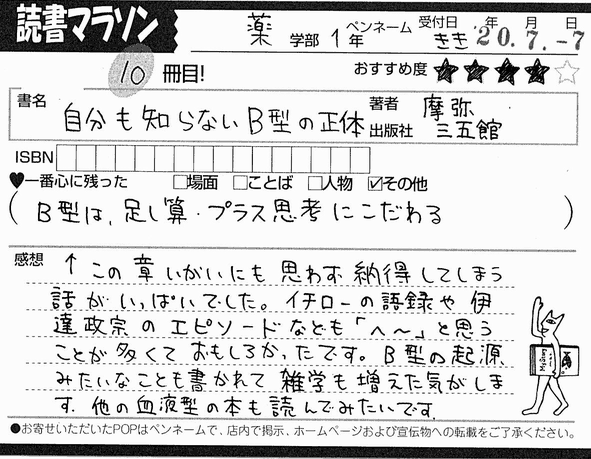 読書マラソン
薬 学部 1年 ペンネーム きき 受付日 '20年 7.月 -7日
10 冊目!
おすすめ度 ★★★★☆
書名 自分も知らないB型の正体
著者 摩弥
出版社 三五館
ISBN
♥一番心に残った □場面 □ことば □人物 ☑その他
(B型は、足し算・プラス思考にこだわる)
感想 ↑この章いがいにも思わず納得してしまう
話がいっぱいでした。イチローの語録や伊
達政宗のエピソードなども「へ〜」と思う
ことが多くておもしろかったです。B型の起源
みたいなことも書かれて雑学も増えた気がしま
す。他の血液型の本も読んでみたいです。
●お寄せいただいたPOPはペンネームで、店内で掲示、ホームページおよび宣伝物への転載をご了承ください。